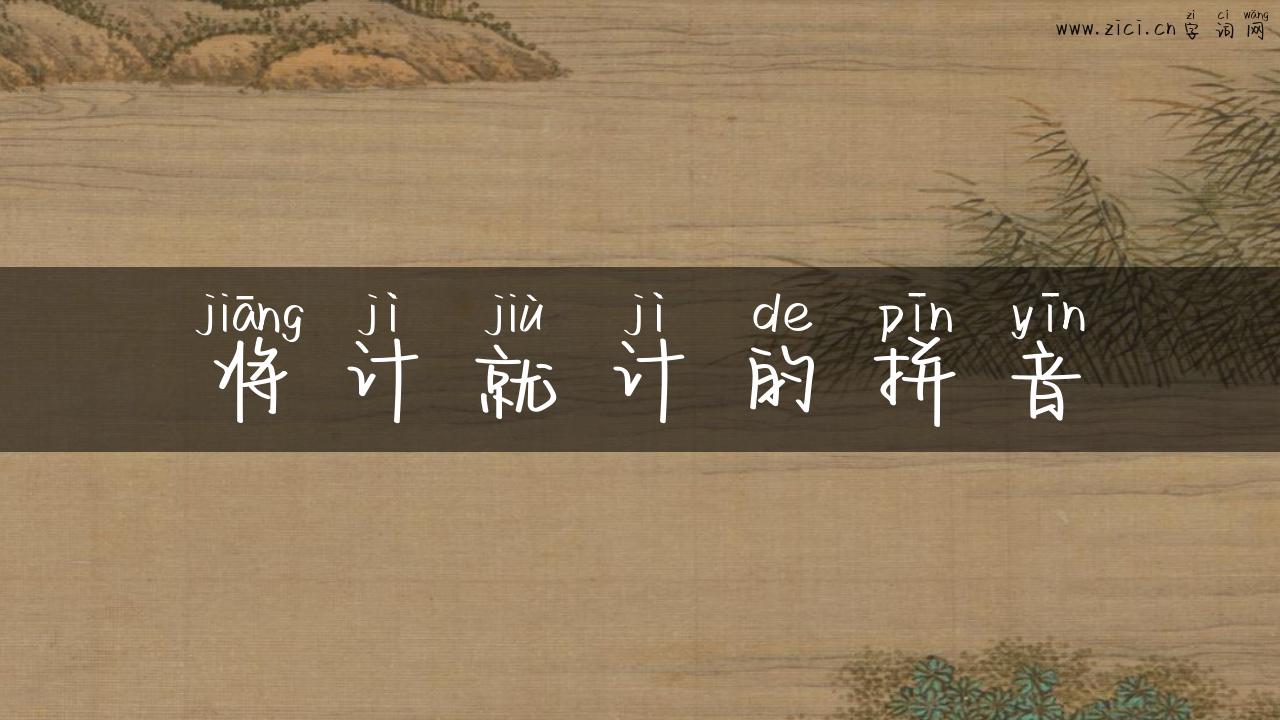 zì cí wǎng
www.zici.cn 字词网
jiāng jì jiù jì de pīn yīn
将计就计的拼音